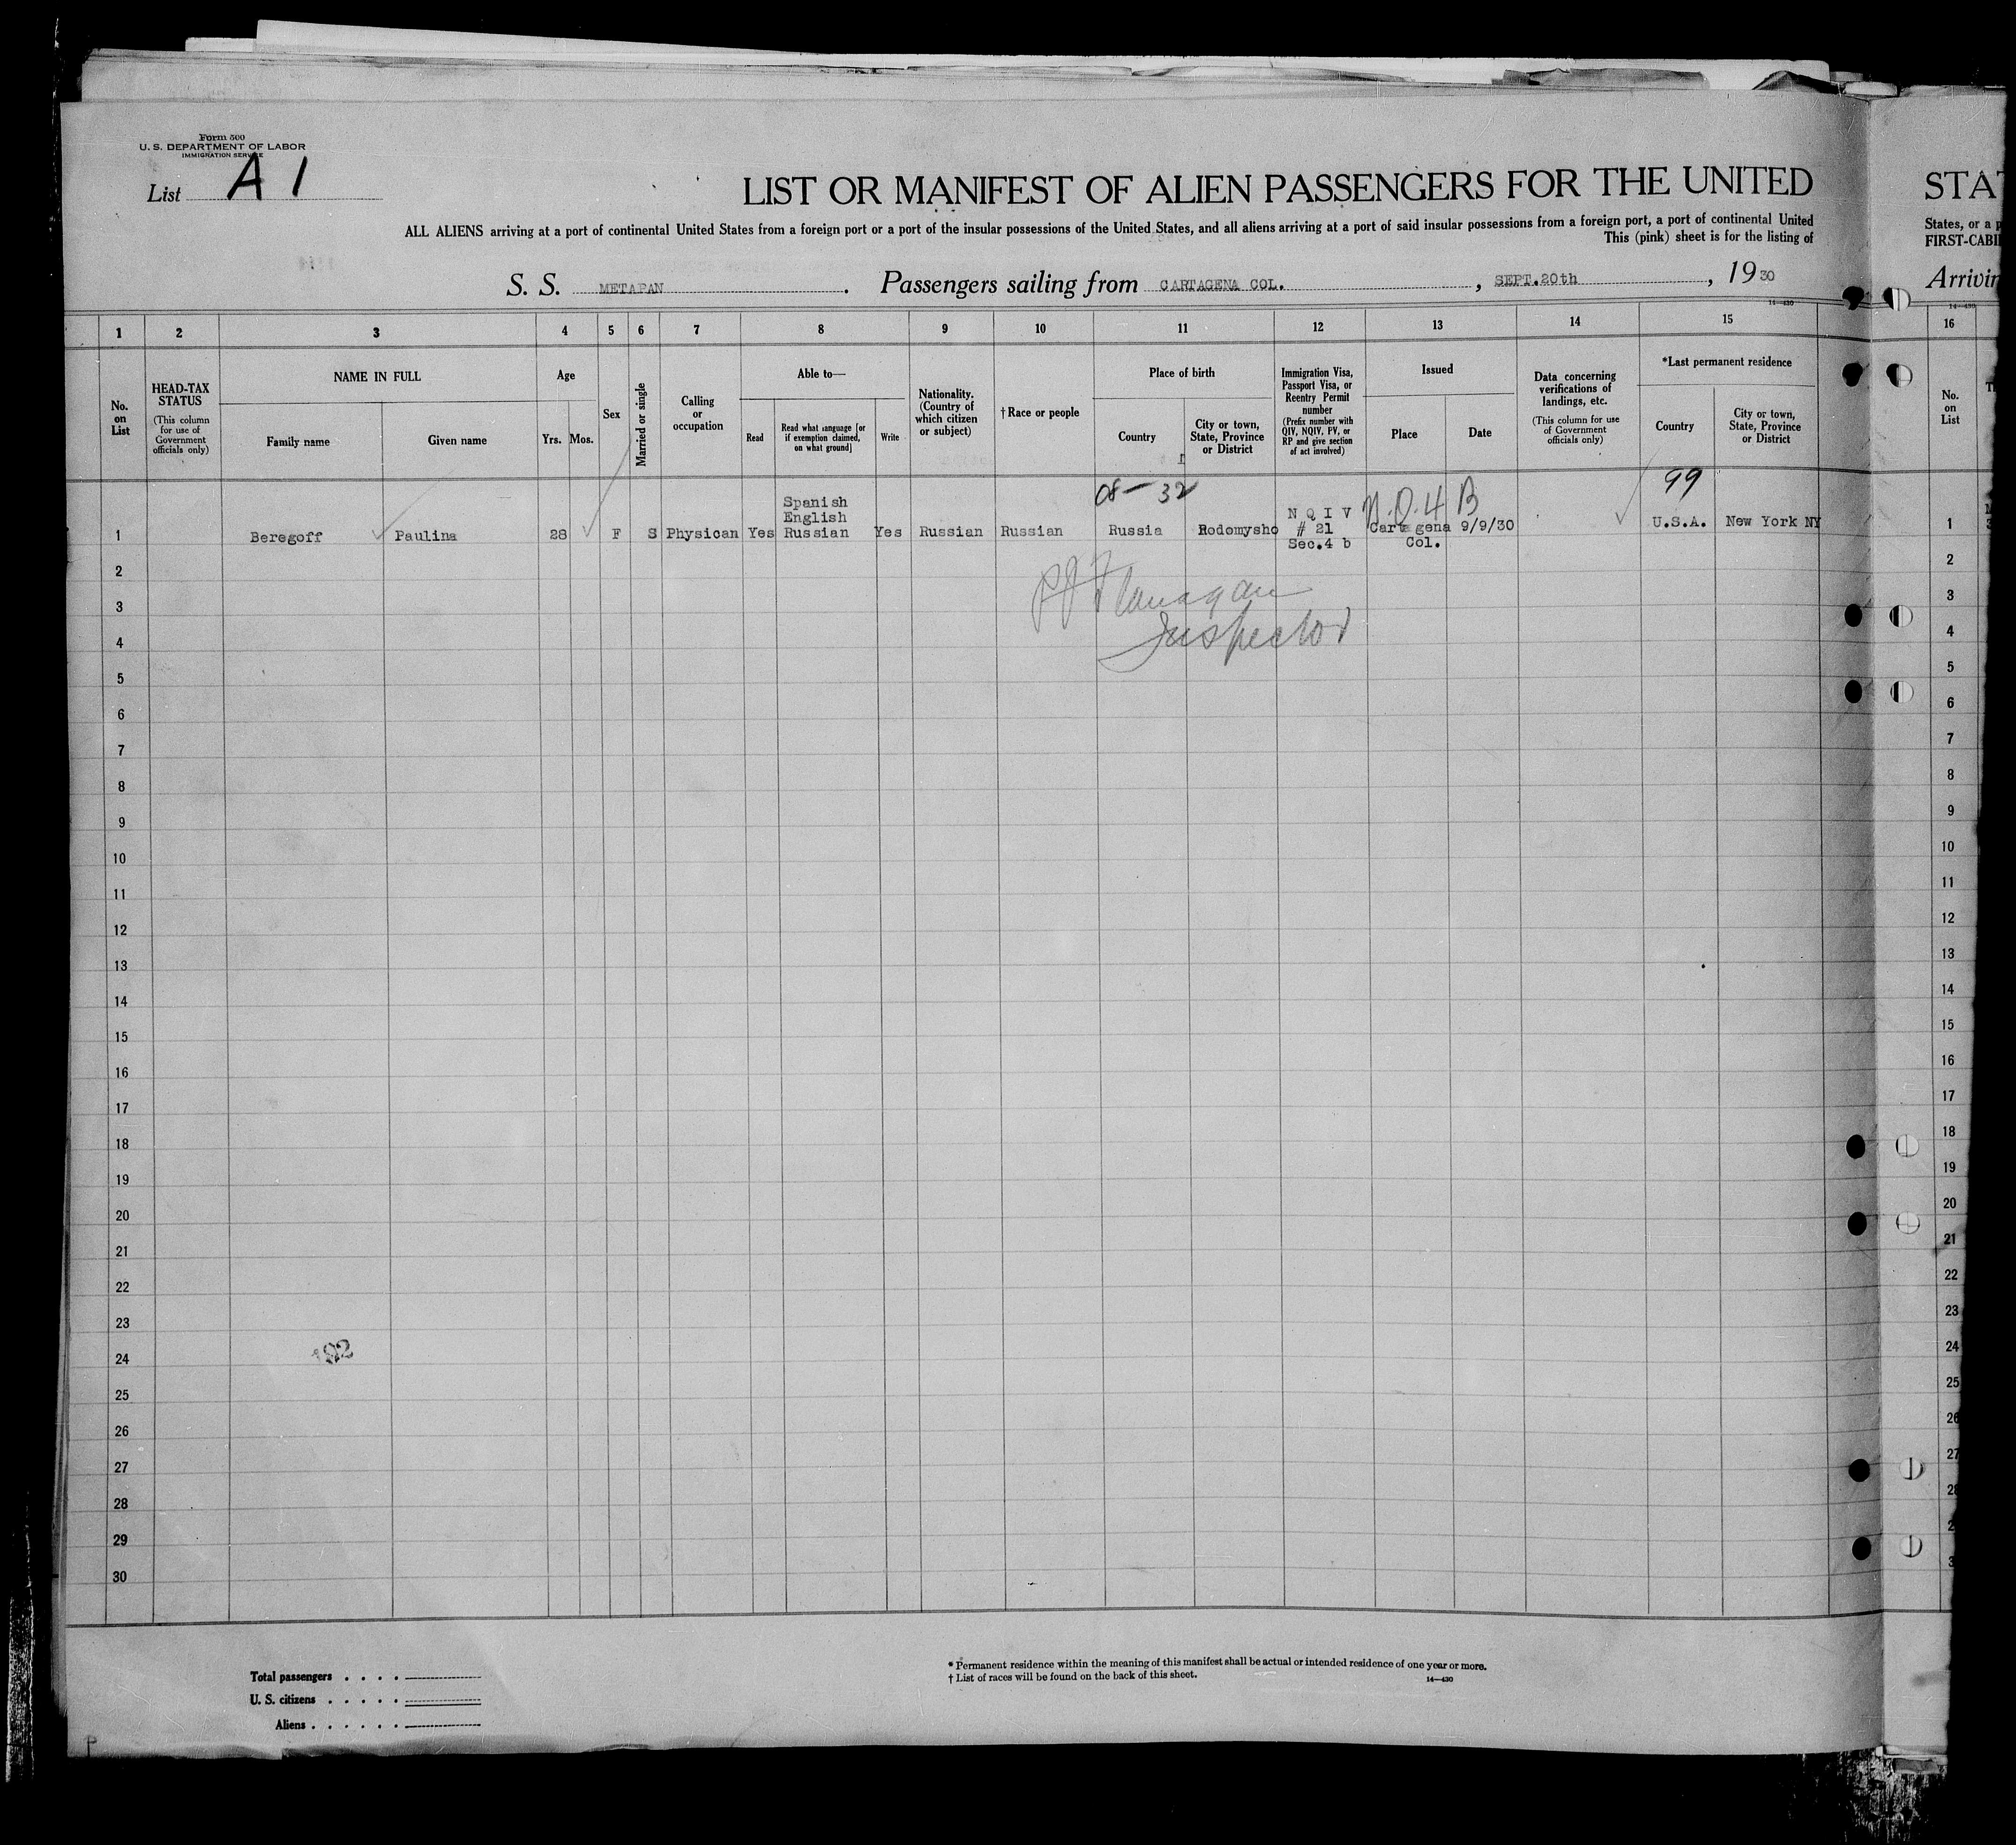 Form 500
U. S. DEPARTMENT OF LABOR
IMMIGRATION SERVICE
List A 1
LIST OR MANIFEST OF ALIEN PASSENGERS FOR THE UNITED
ALL ALIENS arriving at a port of continental United States from a foreign port or a port of the insular possessions of the United States, and all aliens arriving at a port of said insular possessions from a foreign port, a port of continental United
This (pink) sheet is for the listing of
S. S. METAPAN. Passengers sailing from CARTAGENA COL., SEPT.20th, 1930
14—430
1 2 3 4 5 6 7 8 9 10 11 12 13 14 15
No. on List
HEAD-TAX STATUS
(This column for use of Government officials only)
NAME IN FULL
Family name
Given name
Age
Yrs.
Mos.
Sex
Married or single
Calling or occupation
Able to—
Read
Read what language [or if exemption claimed, on what ground]
Write
Nationality. (Country of which citizen or subject)
† Race or people
Place of birth
Country
City or town, State, Province or District
Immigration Visa, Passport Visa, or Reentry Permit number
(Prefix number with QIV, NQIV, PV, or RP and give section of act involved)
Issued
Place
Date
Data concerning verifications of landings, etc.
(This column for use of Government officials only)
*Last permanent residence
Country
City or town, State, Province or District
08— 32
N.Q.4 B
99
1 Beregoff Paulina 28 F S Physican Yes Spanish English Russian Yes Russian Russian Russia Rodomysho N Q I V # 21 Sec.4 b Cartagena Col. 9/9/30 U.S.A. New York NY
2
3
4
5
6
7
8
9
10
11
12
13
14
15
16
17
18
19
20
21
22
23
24
25
26
27
28
29
30
Flanagan
Inspector
192
Total passengers
U. S. citizens
Aliens
* Permanent residence within the meaning of this manifest shall be actual or intended residence of one year or more.
† List of races will be found on the back of this sheet.
14—430
P
STAT
States, or a p
FIRST-CABI
Arrivin
14—430
16
No. on List
1
2
3
4
5
6
7
8
9
10
11
12
13
14
15
16
17
18
19
20
21
22
23
24
25
26
27
28
2
3